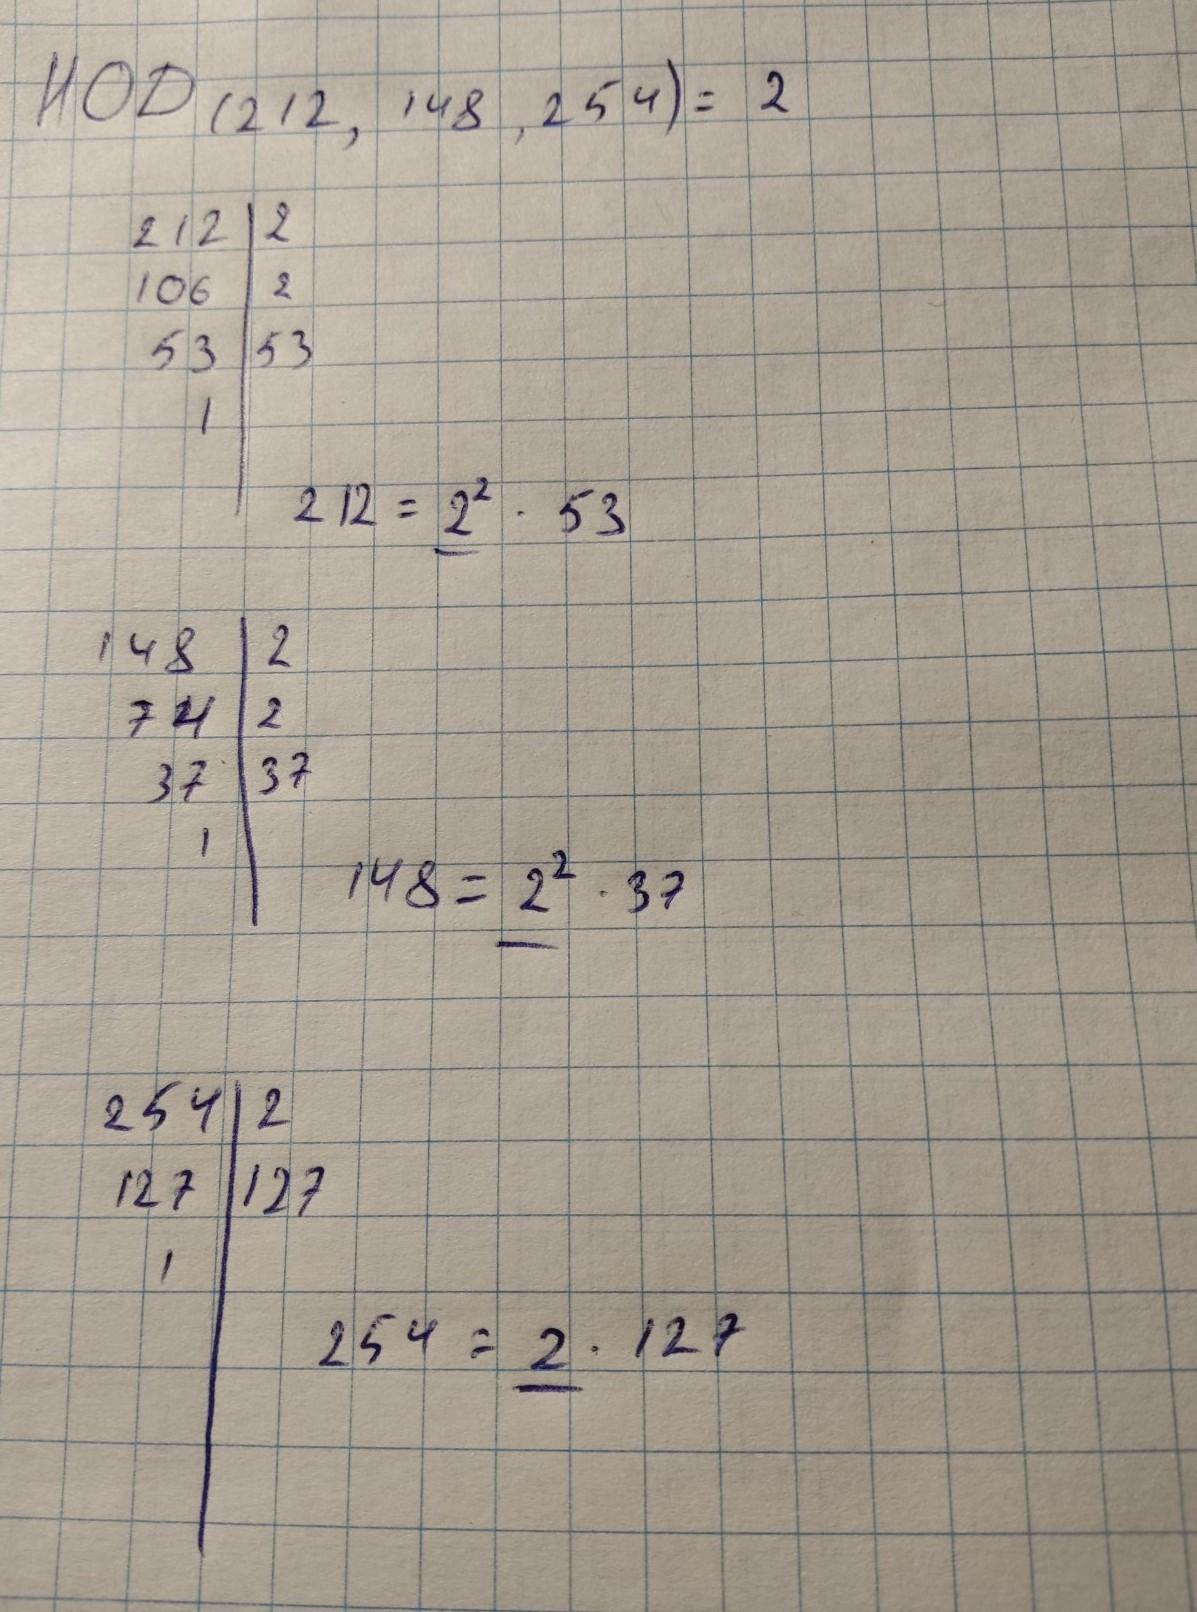 НОД (212, 148, 254) = 2
212 | 2
106 | 2
53 | 53
1
212 = 2² · 53
148 | 2
74 | 2
37 | 37
1
148 = 2² · 37
254 | 2
127 | 127
1
254 = 2 · 127